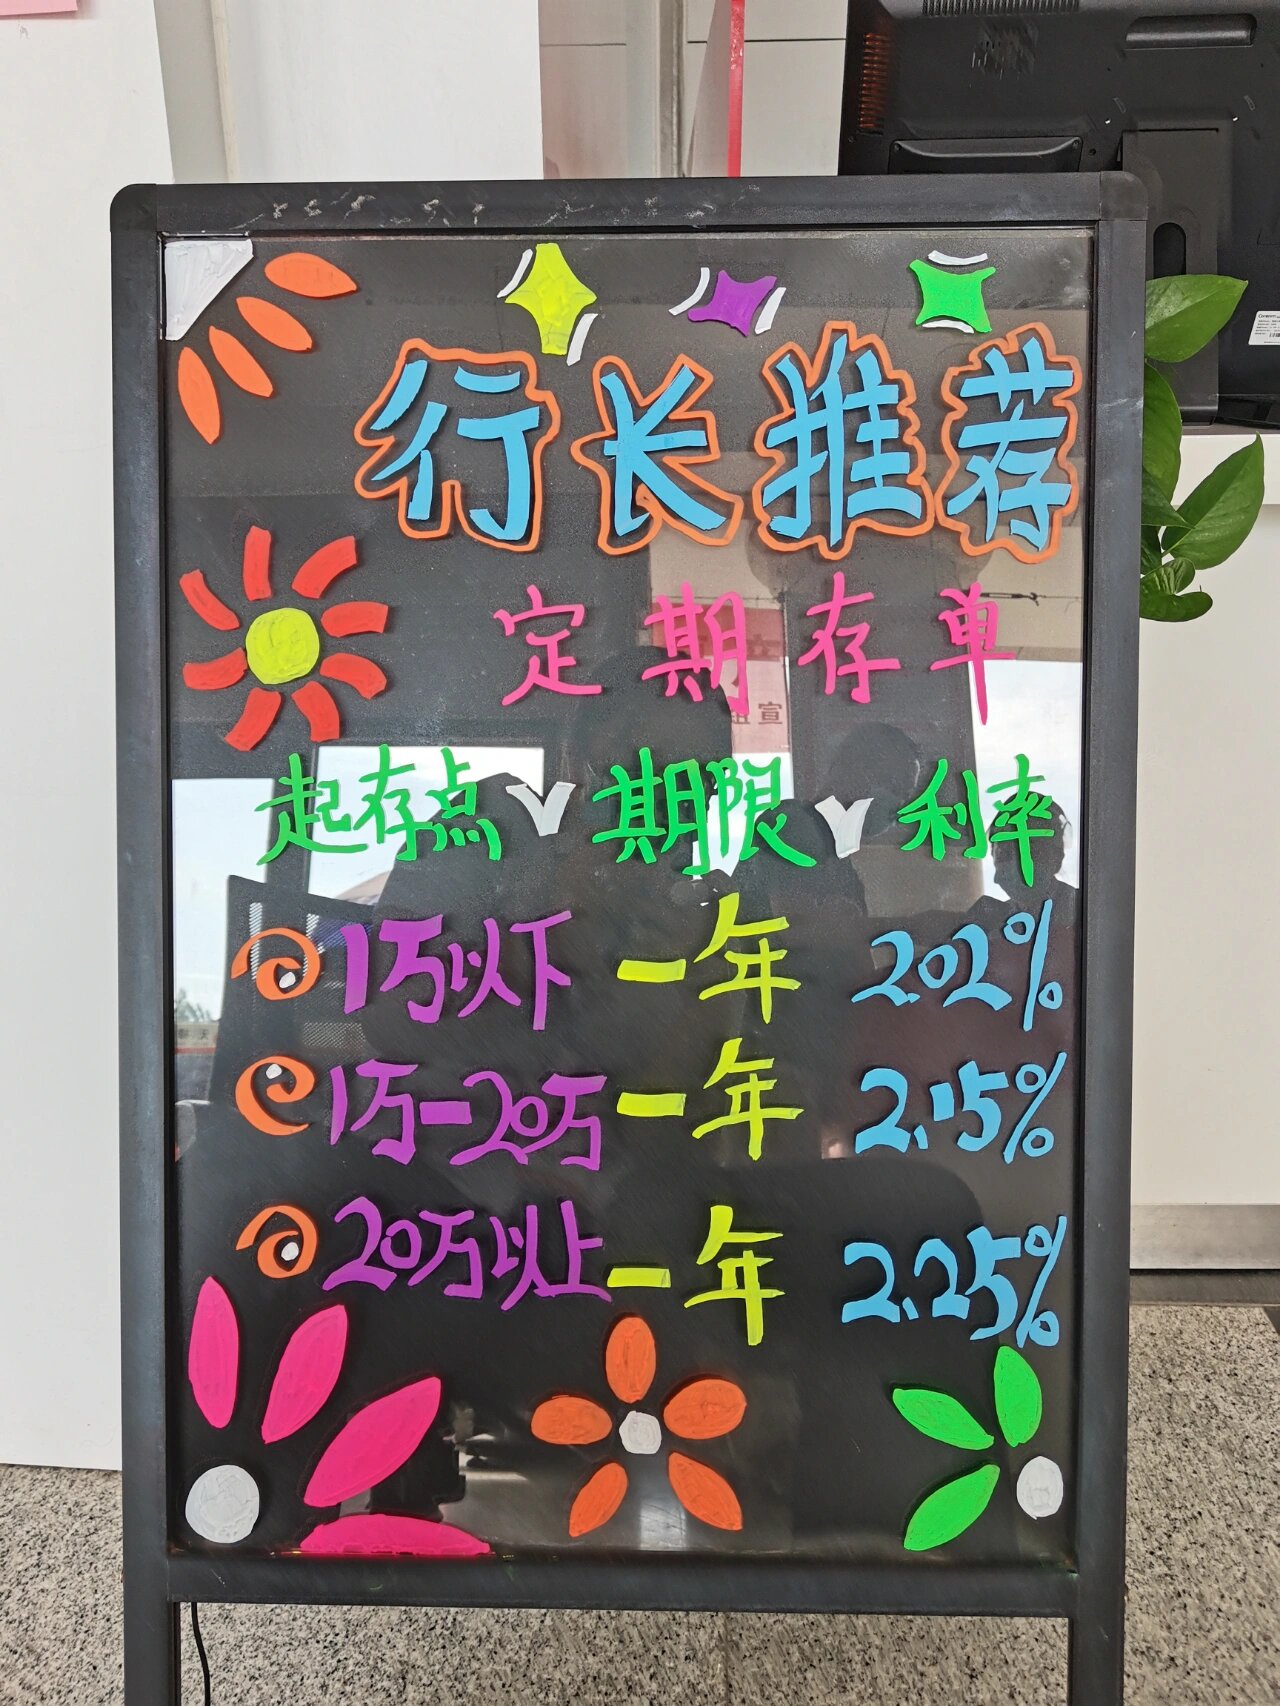 行长推荐
定期存单
起存点 期限 利率
1万以下 一年 2.02%
1万-20万 一年 2.15%
20万以上 一年 2.25%